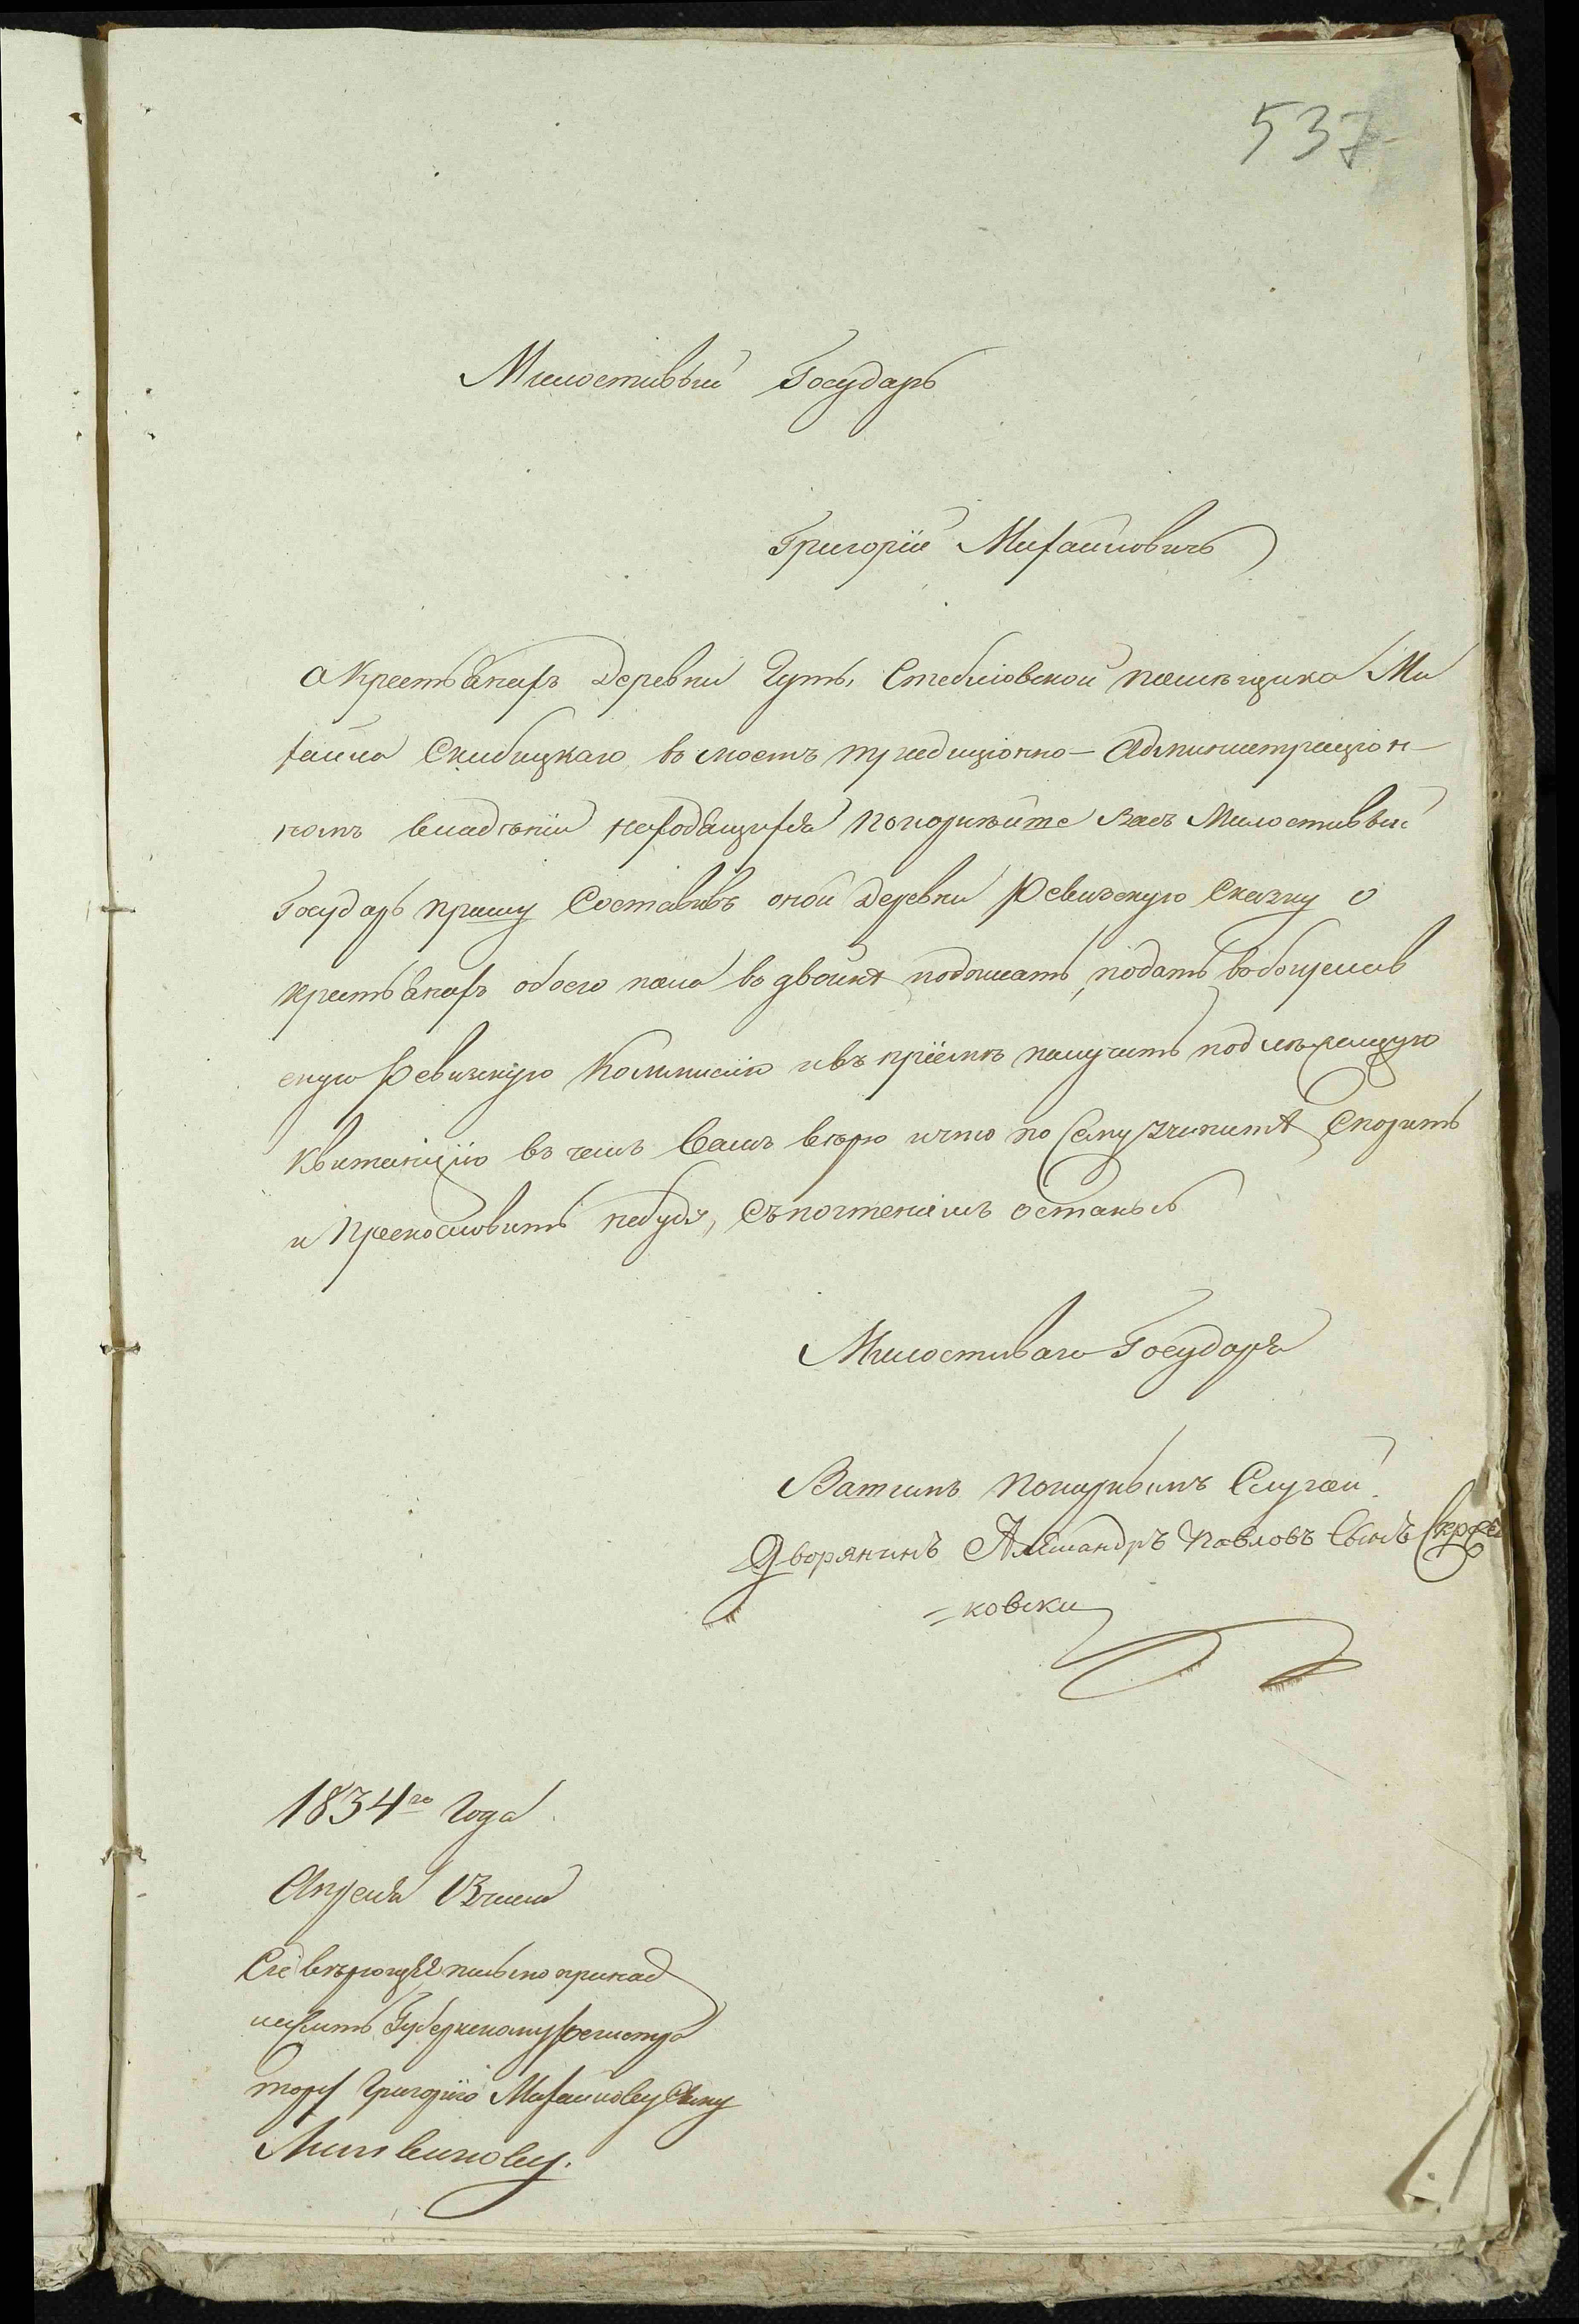 537
Милостивый Государь
Григорій Михайловичъ
О крестьянахъ Деревни Гуты Стебліовской помѣщика Ми
хайла Скибицкаго въ моемъ традиціонно-Администраціон-
номъ владѣніи находящихся покорнѣйте Васъ Милостивый
Государь прошу Составивъ оной Деревни Ревизскую Сказку о
крестьянахъ обоего пола въ двойнѣ подписать, подать в
скую Ревизкую Коммисію и въ пріемѣ получить подлежащую
Квитанцію въ чемъ Вамъ вѣрю и что по сему учините Спорить
и Прекословить небуду, Съ почтеніемъ остаюсь
Милостиваго Государя
Вашимъ покорнымъ Слугой
Дворянинъ Александръ Павловъ Сынъ
=ковски
1834го Года
Апреля 13 числа
Сіе вѣрющее письмо принад
лежитъ Губернскому Регистра
тору Григорію Михайлову Сыну
Литвинову.